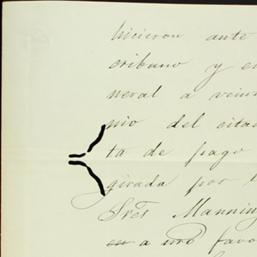 hicieron ante
cribano y en
neral a vein
nio del cita
ta de pago
girada por
Sres Mannin
en a su favo